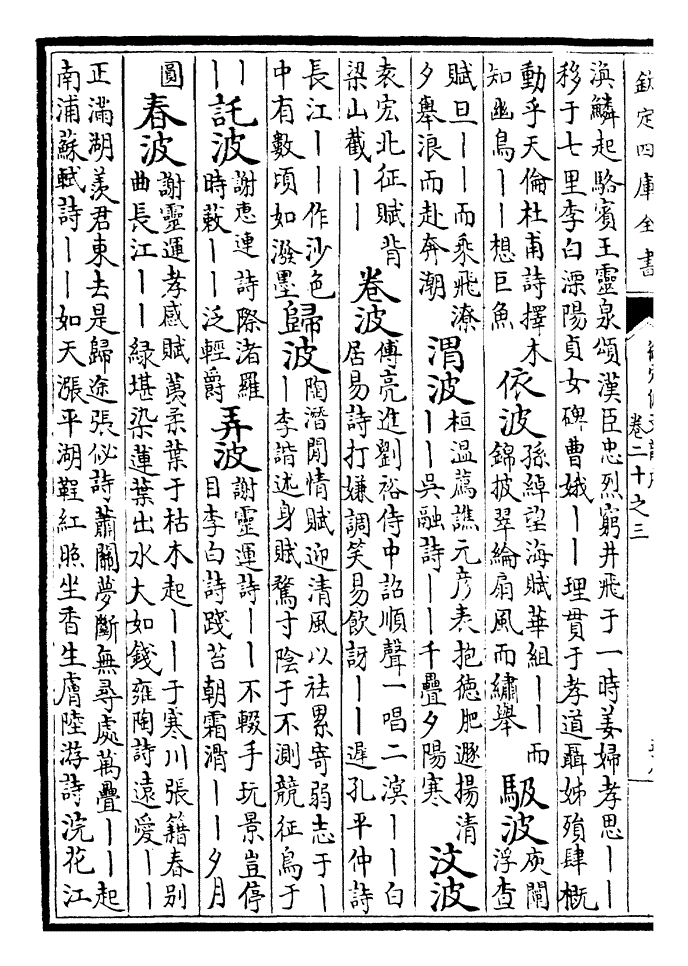 欽定四庫全書
卷二十之三
渙鱗起駱賓王靈泉頌漢臣忠烈窮井飛于一時姜婦孝思丨丨
移于七里李白溧陽貞女碑曹娥丨丨理貫于孝道聶姊殞肆概
動乎天倫杜甫詩擇木
知幽鳥丨丨想巨魚
依波
孫綽望海賦華組丨丨而
錦披翠綸扇風而繡舉
馺波
庾闡
浮查
賦旦丨丨而乘飛潦
夕舉浪而赴奔潮
渭波
桓溫薦譙元彥表抱德肥遯揚清
丨丨吳融詩丨丨千疊夕陽寒
汶波
袁宏北征賦背
梁山截丨丨
卷波
傅亮進劉裕侍中詔順聲一唱二溟丨丨白
居易詩打嫌調笑易飲訝丨丨遲孔平仲詩
長江丨丨作沙色
中有數頃如潑墨
歸波
陶潛閒情賦迎清風以祛累寄弱志于丨
丨李諧述身賦騖寸陰于不測競征鳥于
丨丨
託波
謝惠連詩際渚羅
時蔌丨丨泛輕爵
弄波
謝靈運詩丨丨不輟手玩景豈停
目李白詩踐苔朝霜滑丨丨夕月
圓
春波
謝靈運孝感賦荑柔葉于枯木起丨丨于寒川張籍春別
曲長江丨丨綠堪染蓮葉出水大如錢雍陶詩遠愛丨丨
正滿湖羨君東去是歸途張佖詩蕭關夢斷無尋處萬疊丨丨起
南浦蘇軾詩丨丨如天漲平湖鞓紅照坐香生膚陸游詩浣花江